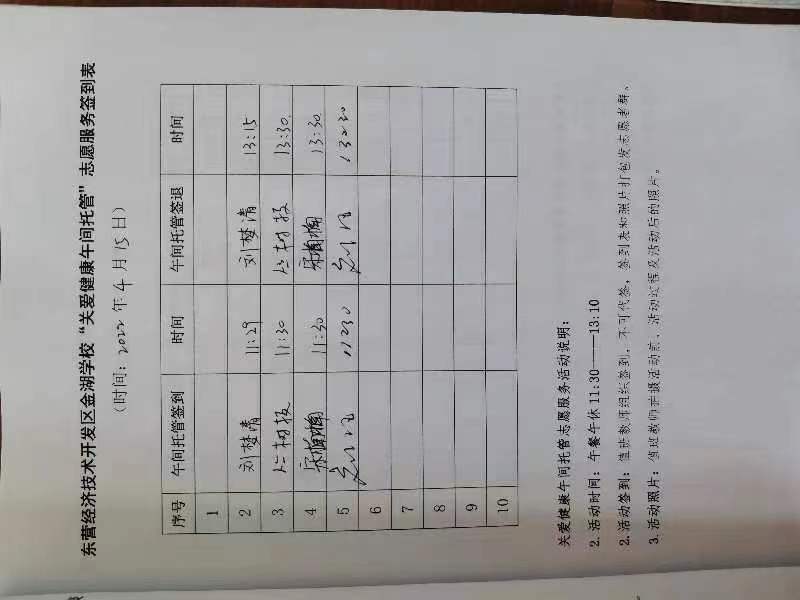 东营经济技术开发区金湖学校“关爱健康午间托管”志愿服务签到表
（时间：2022年4月15日）
序号 午间托管签到 时间 午间托管签退 时间
1
2 刘梦清 11:29 刘梦清 13:15
3 11:30 13:30
4 11:30 13:30
5 11:30 13:30
6
7
8
9
10
关爱健康午间托管志愿服务活动说明：
2.活动时间：午餐午休 11:30——13:10
2.活动签到：值班教师组织签到，不可代签，签到表和照片打包发志愿者群。
3.活动照片：值班教师拍摄活动前、活动过程及活动后的照片。